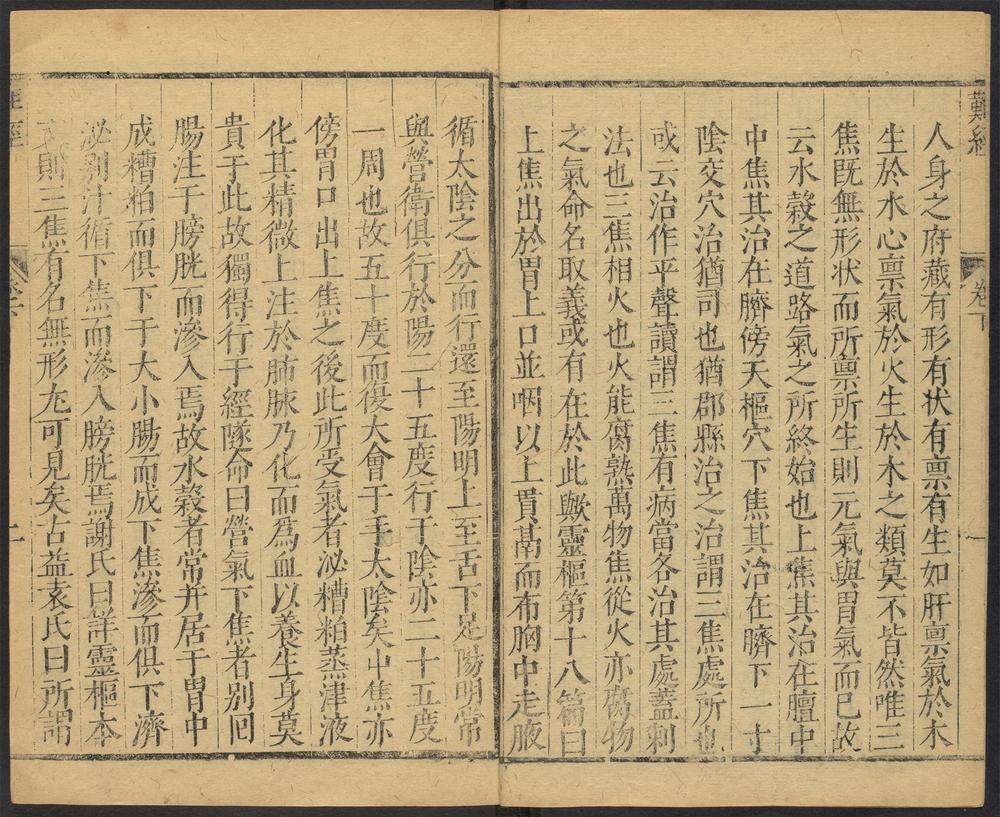 難經
卷下
人身之府藏有形有状有禀有生如肝禀氣於木
生於水心禀氣於火生於木之類莫不皆然唯三
焦既無形状而所禀所生則元氣與胃氣而已故
云水穀之道路氣之所終始也上焦其治在膻中
中焦其治在臍傍天樞穴下焦其治在臍下一寸
陰交穴治猶司也猶郡縣治之治謂三焦處所也
或云治作平聲讀謂三焦有病當各治其處蓋刺
法也三焦相火也火能腐熟萬物焦從火亦腐物
之氣命名取義或有在於此歟靈樞第十八篇曰
上焦出於胃上口並咽以上貫鬲而布胸中走腋
循太陰之分而行還至陽明上至舌下足陽明常
與營衛俱行於陽二十五度行于陰亦二十五度
一周也故五十度而復大會于手太陰矣中焦亦
傍胃口出上焦之後此所受氣者泌糟粕蒸津液
化其精微上注於肺脉乃化而爲血以養生身莫
貴于此故獨得行于經隧命曰營氣下焦者别回
腸注于膀胱而滲入焉故水穀者常并居于胃中
成糟粕而俱下于大小腸而成下焦滲而俱下濟
泌别汁循下焦而滲入膀胱焉謝氏曰詳靈樞本
則三焦有名無形尤可見矣古益袁氏曰所謂
經